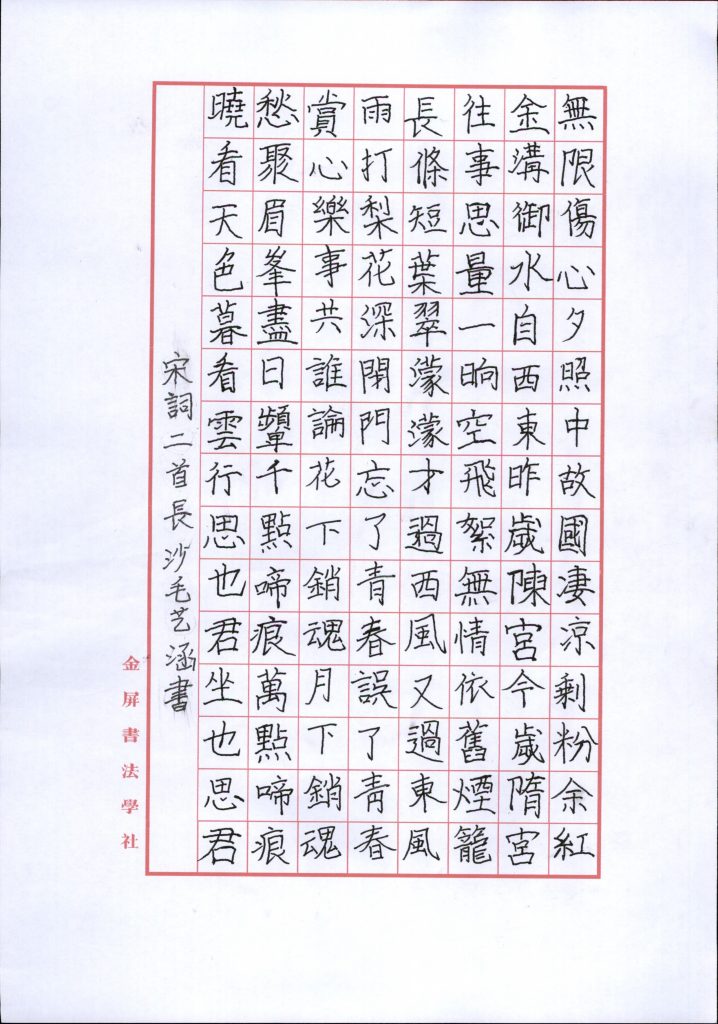 無限傷心夕照中故國凄涼剩粉余紅
金溝御水自西東昨歲陳宮今歲隋宮
往事思量一晌空飛絮無情依舊煙籠
長條短葉翠濛濛才過西風又過東風
雨打梨花深閉門忘了青春誤了青春
賞心樂事共誰論花下銷魂月下銷魂
愁聚眉峯盡日顰千點啼痕萬點啼痕
曉看天色暮看雲行思也君坐也思君
宋詞二首長沙毛艺涵書
金屏書法學社